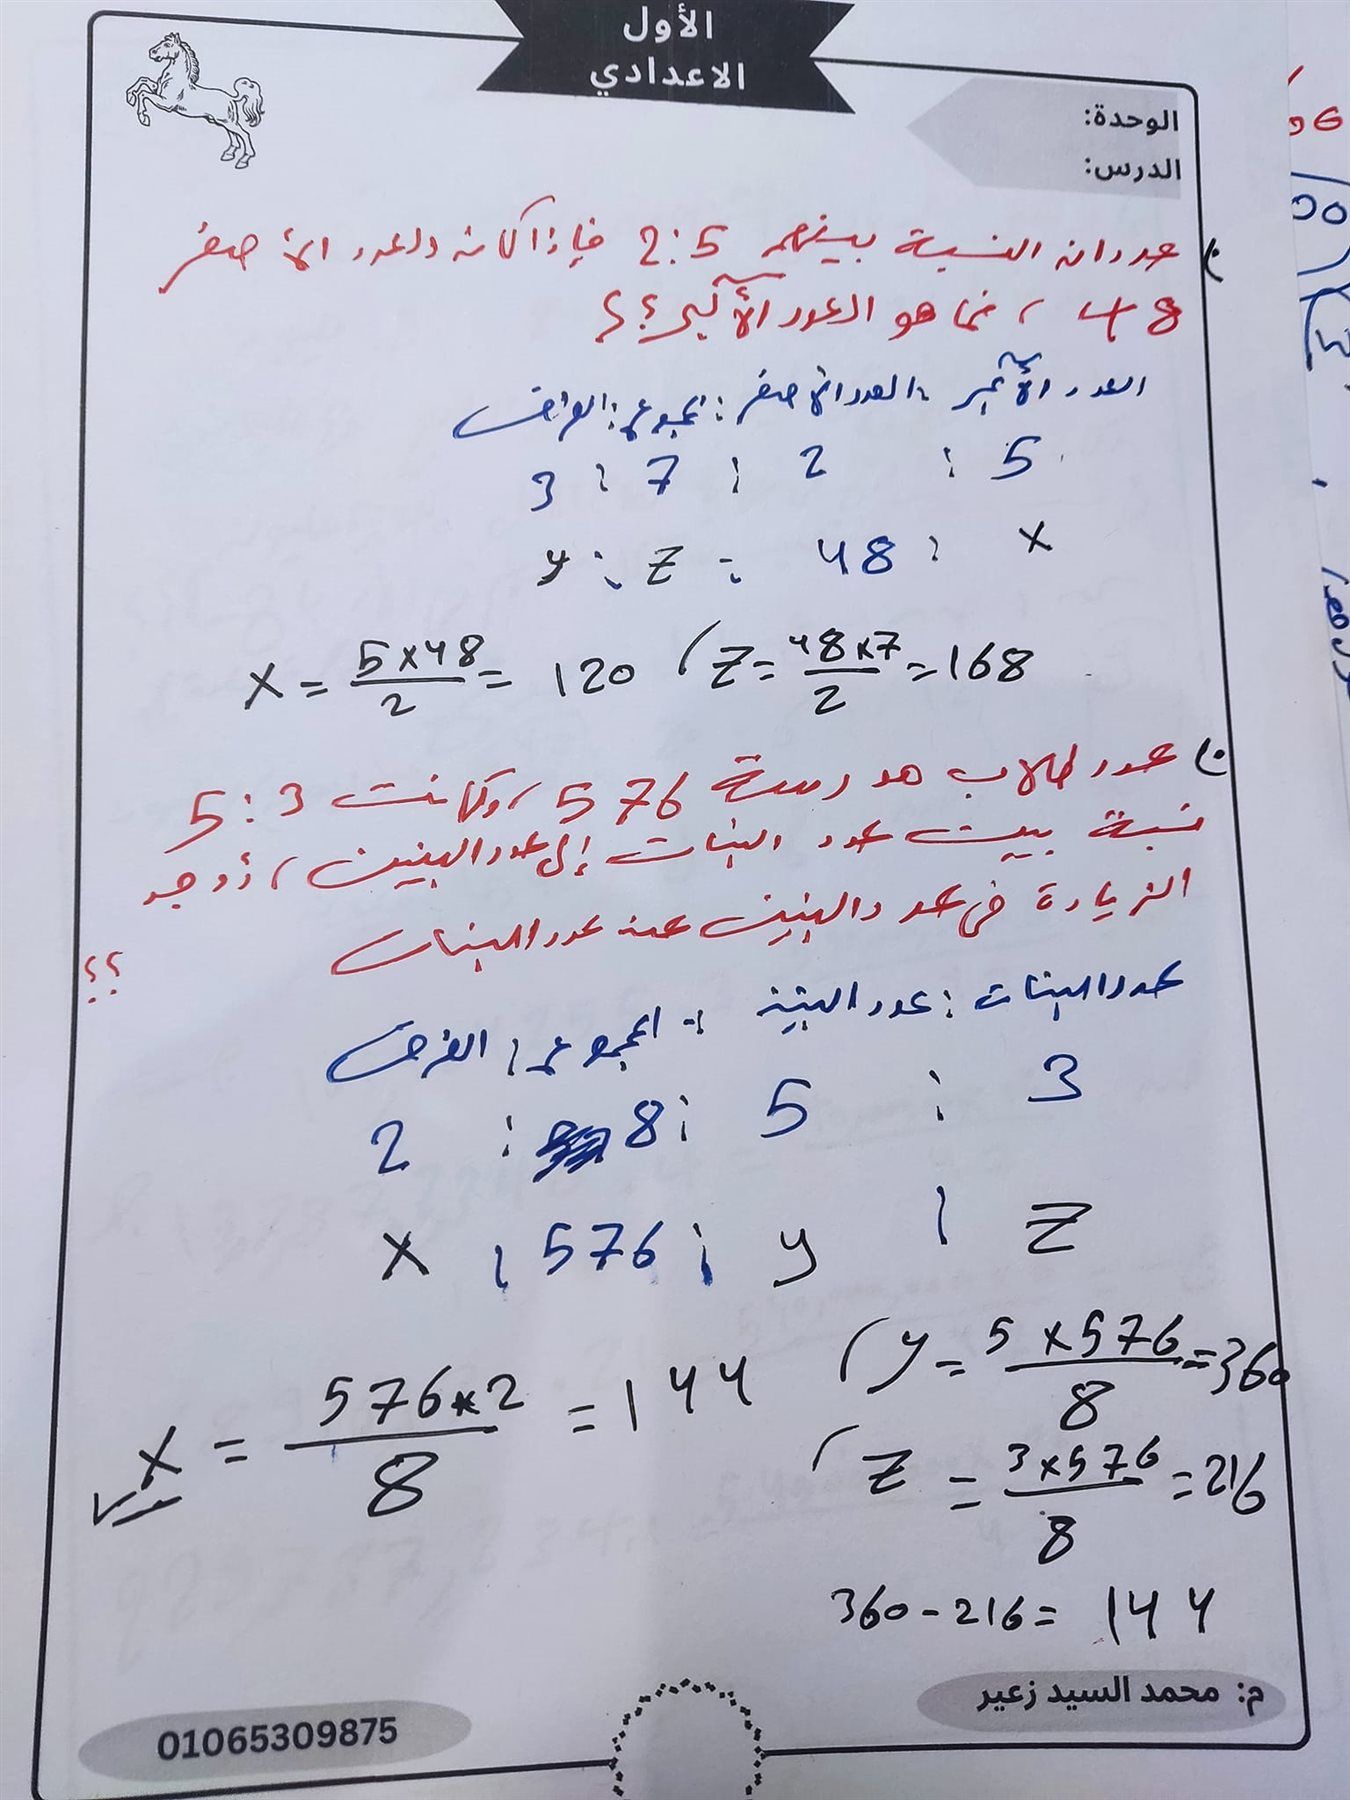 الأول
الاعدادي
الوحدة:
الدرس:
عددان النسبة بينهم 2:5 فإذا كانه العدد الأصغر
48 ، فما هو العدد الأكبر؟؟
العدد الأكبر : العدد الأصغر : المجموع : الفرق
5 : 2 : 7 : 3
x : 48 : z : y
x = 5×48/2 = 120 , z = 48×7/2 = 168
عدد طلاب مدرسة 576 ، وكانت 5:3
نسبة بين عدد البنات إلى عدد البنين ، أوجد
الزيادة في عدد البنين عن عدد البنات
؟؟
عدد البنات : عدد البنين : المجموع : الفرق
3 : 5 : 8 : 2
z : y : 576 : x
y = 5×576/8 = 360
x = 576×2/8 = 144
z = 3×576/8 = 216
360 - 216 = 144
م: محمد السيد زعير
01065309875